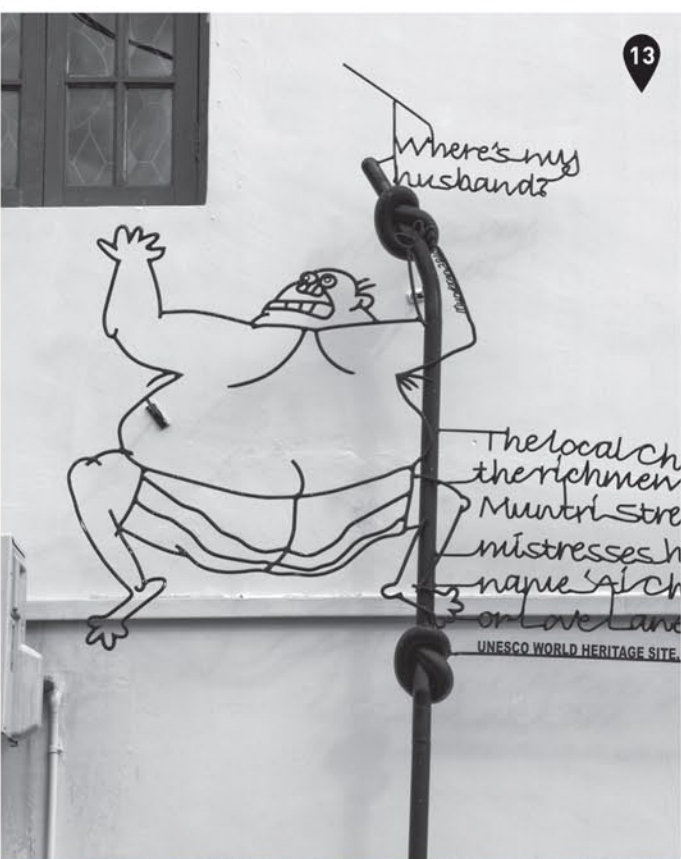 13
Where's my
husband?
The local Ch
the richmen
Muntri Stre
mistresses h
name 'Ai Ch
or Love Lane
UNESCO WORLD HERITAGE SITE.